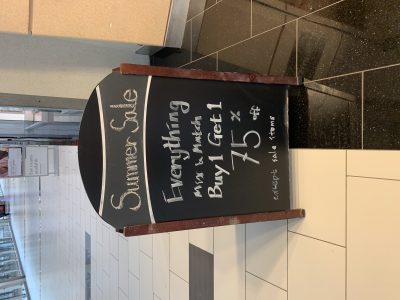 Summer Sale
Everything
Mix & Match
Buy 1 Get 1
75% off
except sale items